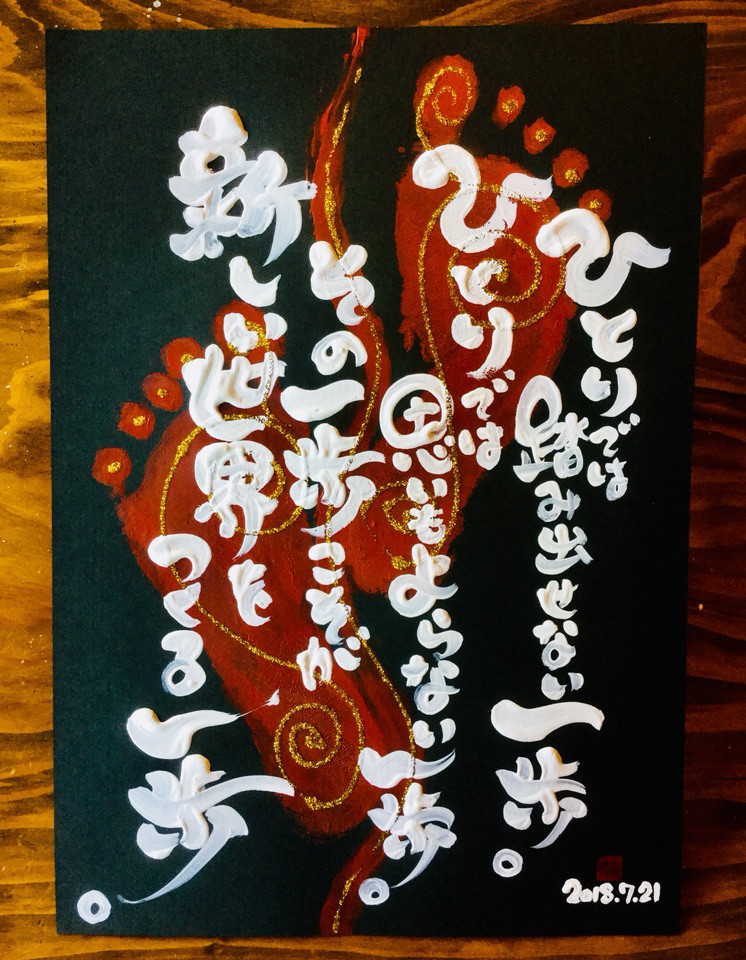 ひとりでは
踏み出せない一歩。
ひとりでは
思いもよらない一歩。
その一歩こそが
新しい世界を
つくる一歩。
2018.7.21